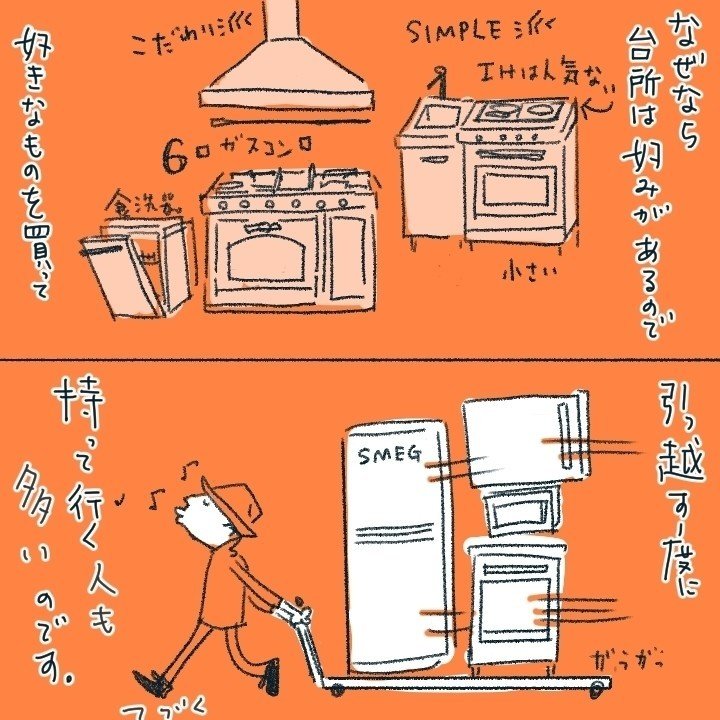 なぜなら
台所は好みがあるので
SIMPLE派
IHは人気ない
小さい
こだわり派
6口ガスコンロ
食洗器
好きなものを買って
引っ越す度に
SMEG
がらがら
持って行く人も
多いのです。
つづく